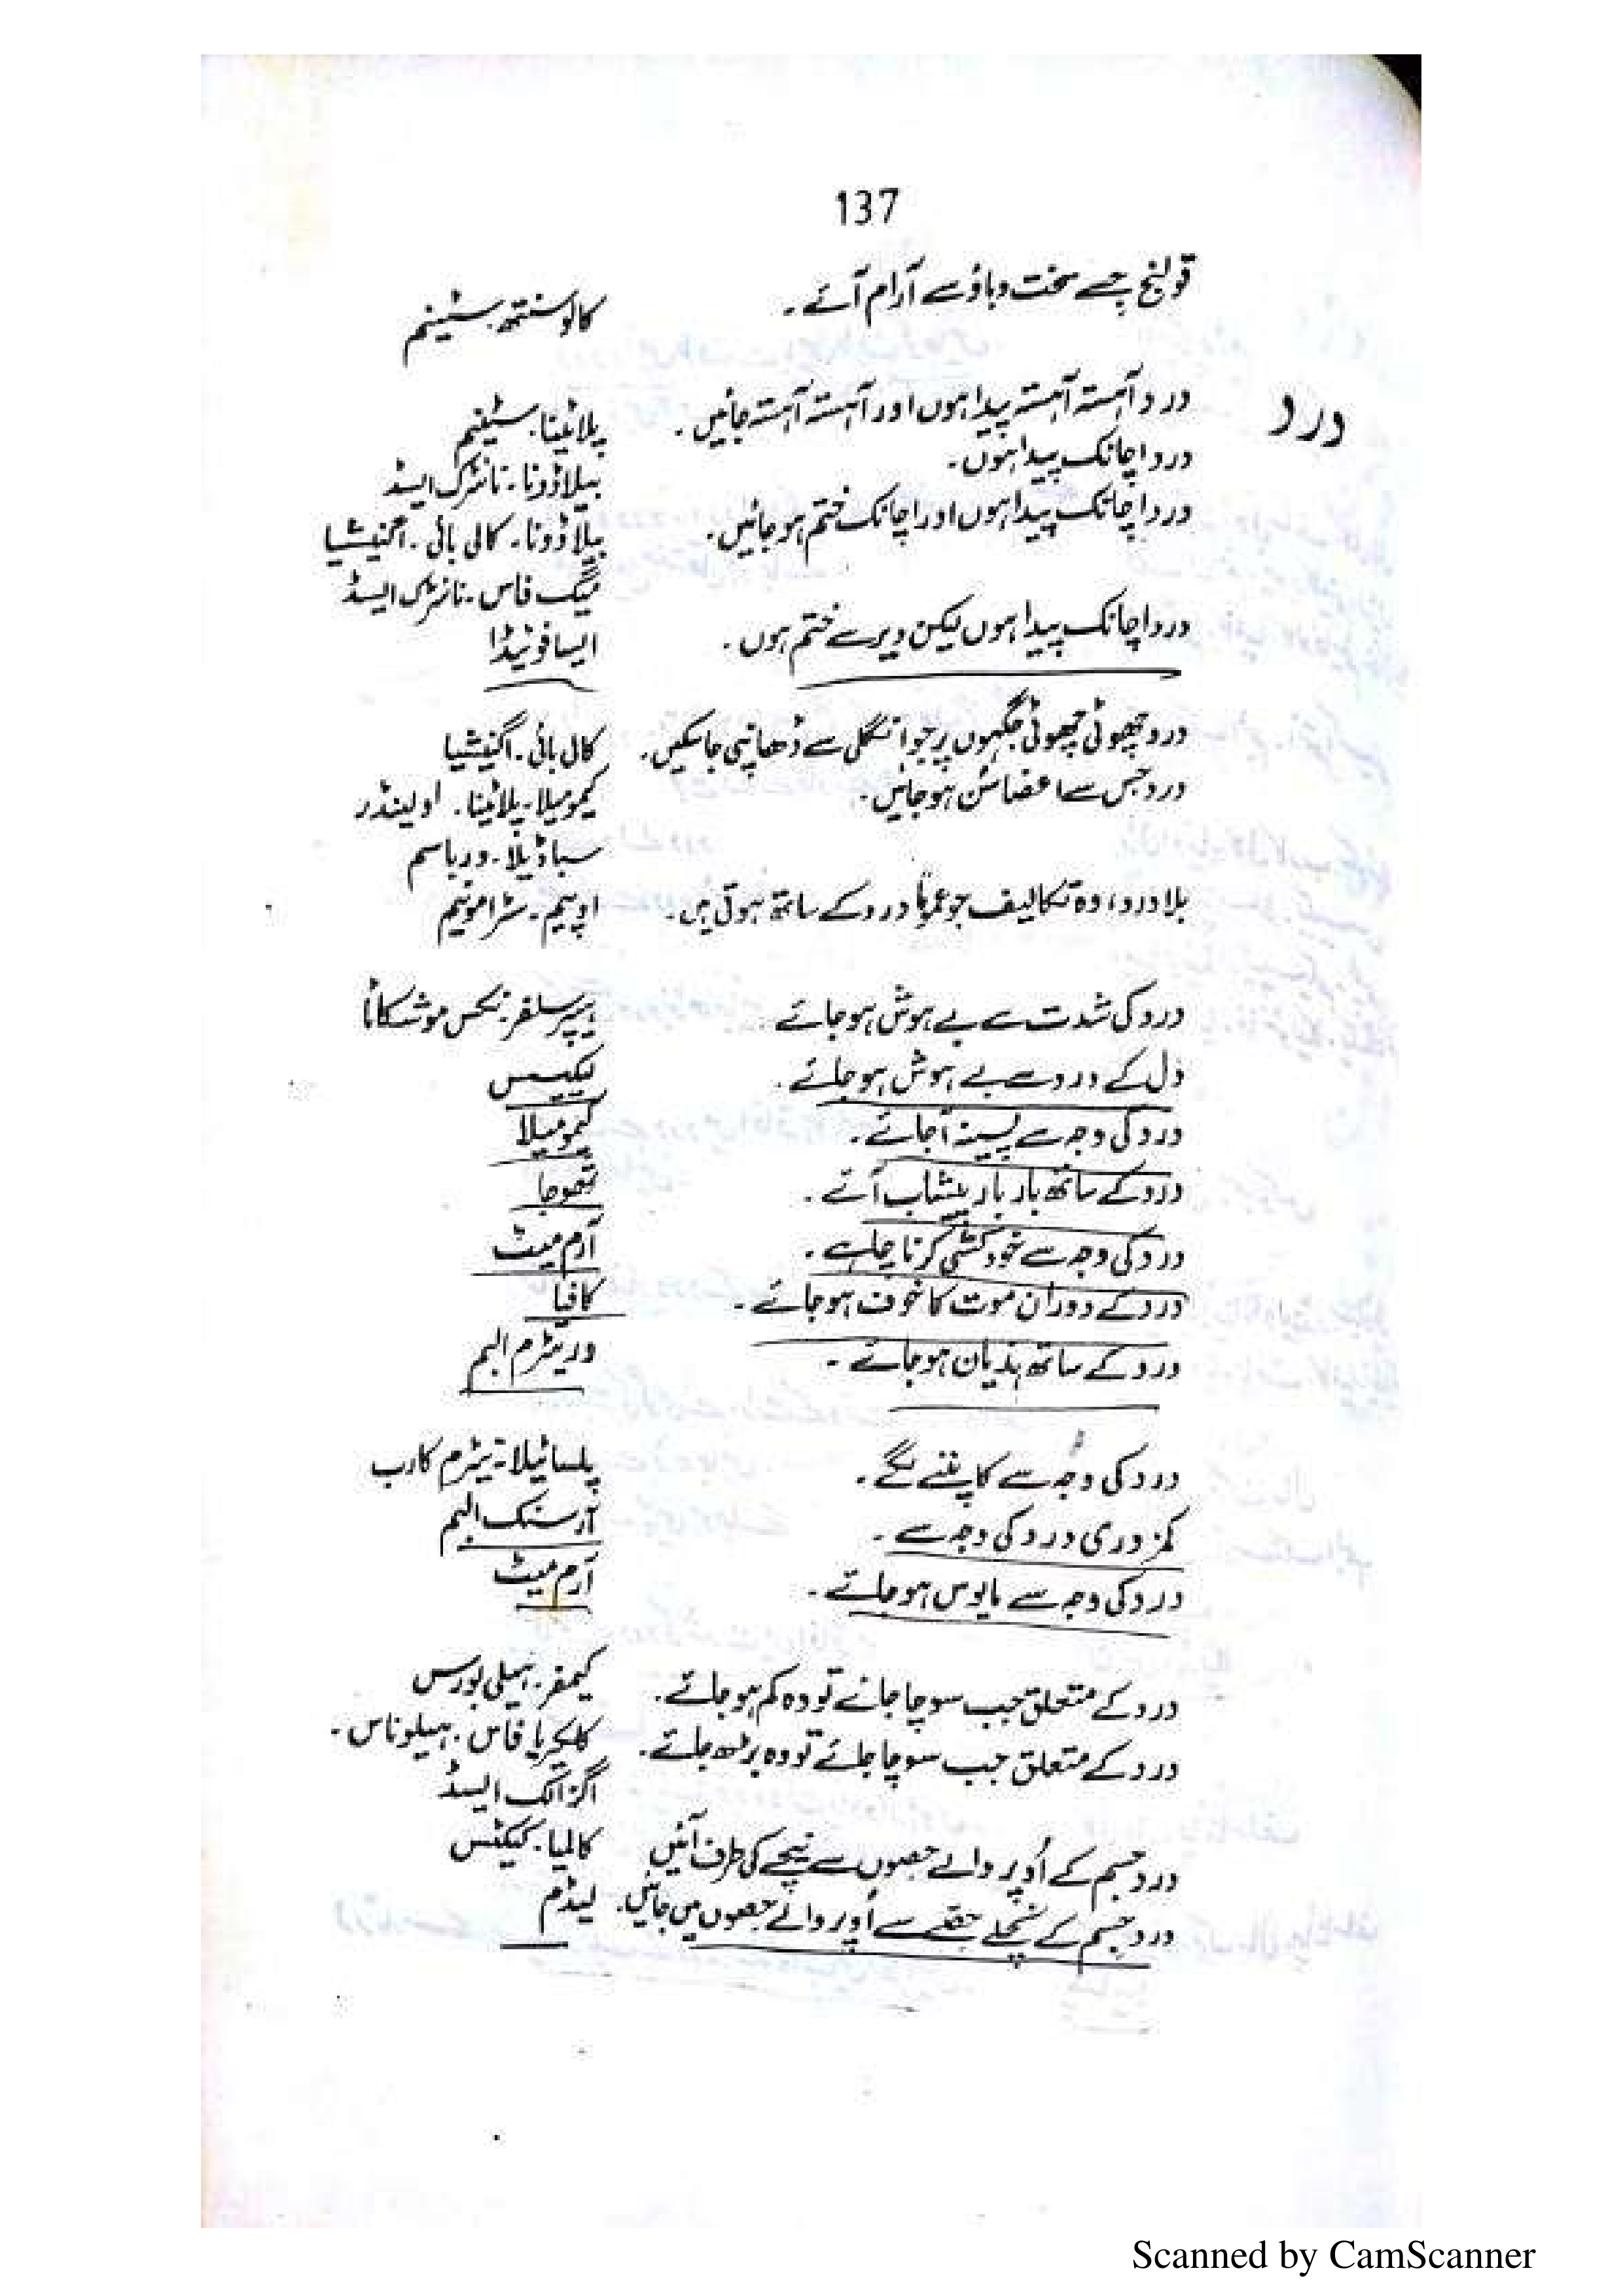 137
قولنج جسے سخت دباؤ سے آرام آئے۔ کالوسنتھ۔ سٹینم
درد
درد آہستہ آہستہ پیدا ہوں اور آہستہ آہستہ جائیں۔ پلاٹینا۔ سٹینم
درد اچانک پیدا ہوں۔ بیلاڈونا۔ نائٹرک ایسڈ
درد اچانک پیدا ہوں اور اچانک ختم ہو جائیں۔ بیلاڈونا۔ کالی بائی۔ اگنیشیا
میگ فاس۔ نائٹرک ایسڈ
درد اچانک پیدا ہوں لیکن دیر سے ختم ہوں۔ ایسافوٹیڈا
درد چھوٹی چھوٹی جگہوں پر جو انگلی سے ڈھانپی جا سکیں۔ کالی بائی۔ اگنیشیا
درد جس سے اعضا سُن ہو جائیں۔ کیمومیلا۔ پلاٹینا۔ اولینڈر
سباڈیلا۔ ورباسم
بلا درد، وہ تکالیف جو عموماً درد کے ساتھ ہوتی ہیں۔ اوپیم۔ سٹرامونیم
درد کی شدت سے بے ہوش ہو جائے۔ ہیپر سلفر۔ نکس موشکاٹا
دل کے درد سے بے ہوش ہو جائے۔ کیکٹس
درد کی وجہ سے پسینہ آ جائے۔ کیمومیلا
درد کے ساتھ بار بار پیشاب آئے۔ تھوجا
درد کی وجہ سے خودکشی کرنا چاہے۔ آرم میٹ
درد کے دوران موت کا خوف ہو جائے۔ کافیا
درد کے ساتھ ہذیان ہو جائے۔ وریٹرم البم
درد کی وجہ سے کاپننے لگے۔ پلساٹیلا۔ نیٹرم کارب
کمزوری درد کی وجہ سے۔ آرسنک البم
درد کی وجہ سے مایوس ہو جائے۔ آرم میٹ
درد کے متعلق جب سوچا جائے تو وہ کم ہو جائے۔ کیمفر۔ ہیلی بورس
درد کے متعلق جب سوچا جائے تو وہ بڑھ جائے۔ کلکیریا فاس۔ ہیلوناس۔
اگزالک ایسڈ
درد جسم کے اُوپر والے حصوں سے نیچے کی طرف آئیں کالمیا۔ کیکٹس
درد جسم کے نچلے حصے سے اُوپر والے حصوں میں جائیں۔ لیڈم
Scanned by CamScanner